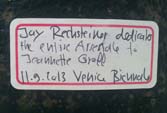 Jay Rechsteiner dedicates
the entire Arsenale to
Jeannette Groll
11.9.2013 Venice Biennale